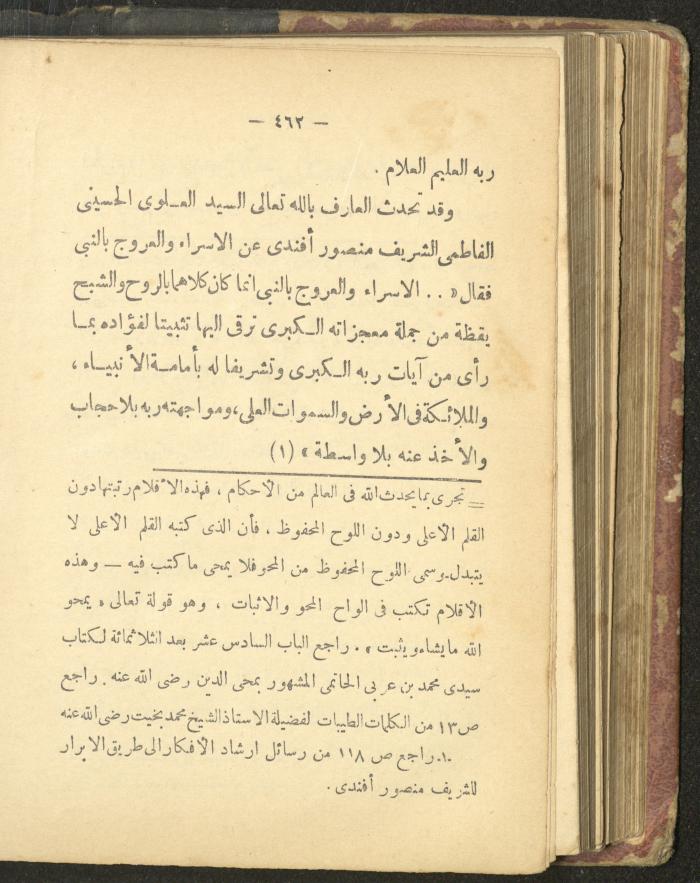 — ٤٦٢ —
ربه العليم العلام .
وقد تحدث العارف بالله تعالى السيد العلوى الحسينى
الفاطمى الشريف منصور أفندى عن الاسراء والعروج بالنبى
فقال « . . الاسراء والعروج بالنبى انما كان كلاهما بالروح والشبح
يقظة من جملة معجزاته الكبرى ترقى اليها تثبيتا لفؤاده بما
رأى من آيات ربه الكبرى وتشريفا له بأمامة الأنبياء ،
والملائكة فى الأرض والسموات العلى ، ومواجهته ربه بلا حجاب
والأخذ عنه بلا واسطة » (١)
= تجرى بما يحدث الله فى العالم من الأحكام ، فهذه الأقلام رتبتها دون
القلم الأعلى ودون اللوح المحفوظ ، فأن الذى كتبه القلم الأعلى لا
يتبدل . وسمى اللوح المحفوظ من المحو فلا يمحى ما كتب فيه — وهذه
الأقلام تكتب فى الواح المحو والاثبات ، وهو قولة تعالى « يمحو
الله ما يشاء ويثبت » . راجع الباب السادس عشر بعد الثلاثمائة لكتاب
سيدى محمد بن عربى الحاتمى المشهور بمحى الدين رضى الله عنه . راجع
ص ١٣ من الكلمات الطيبات لفضيلة الاستاذ الشيخ محمد بخيت رضى الله عنه
.١. راجع ص ١١٨ من رسائل ارشاد الأفكار الى طريق الابرار
للشريف منصور أفندى .